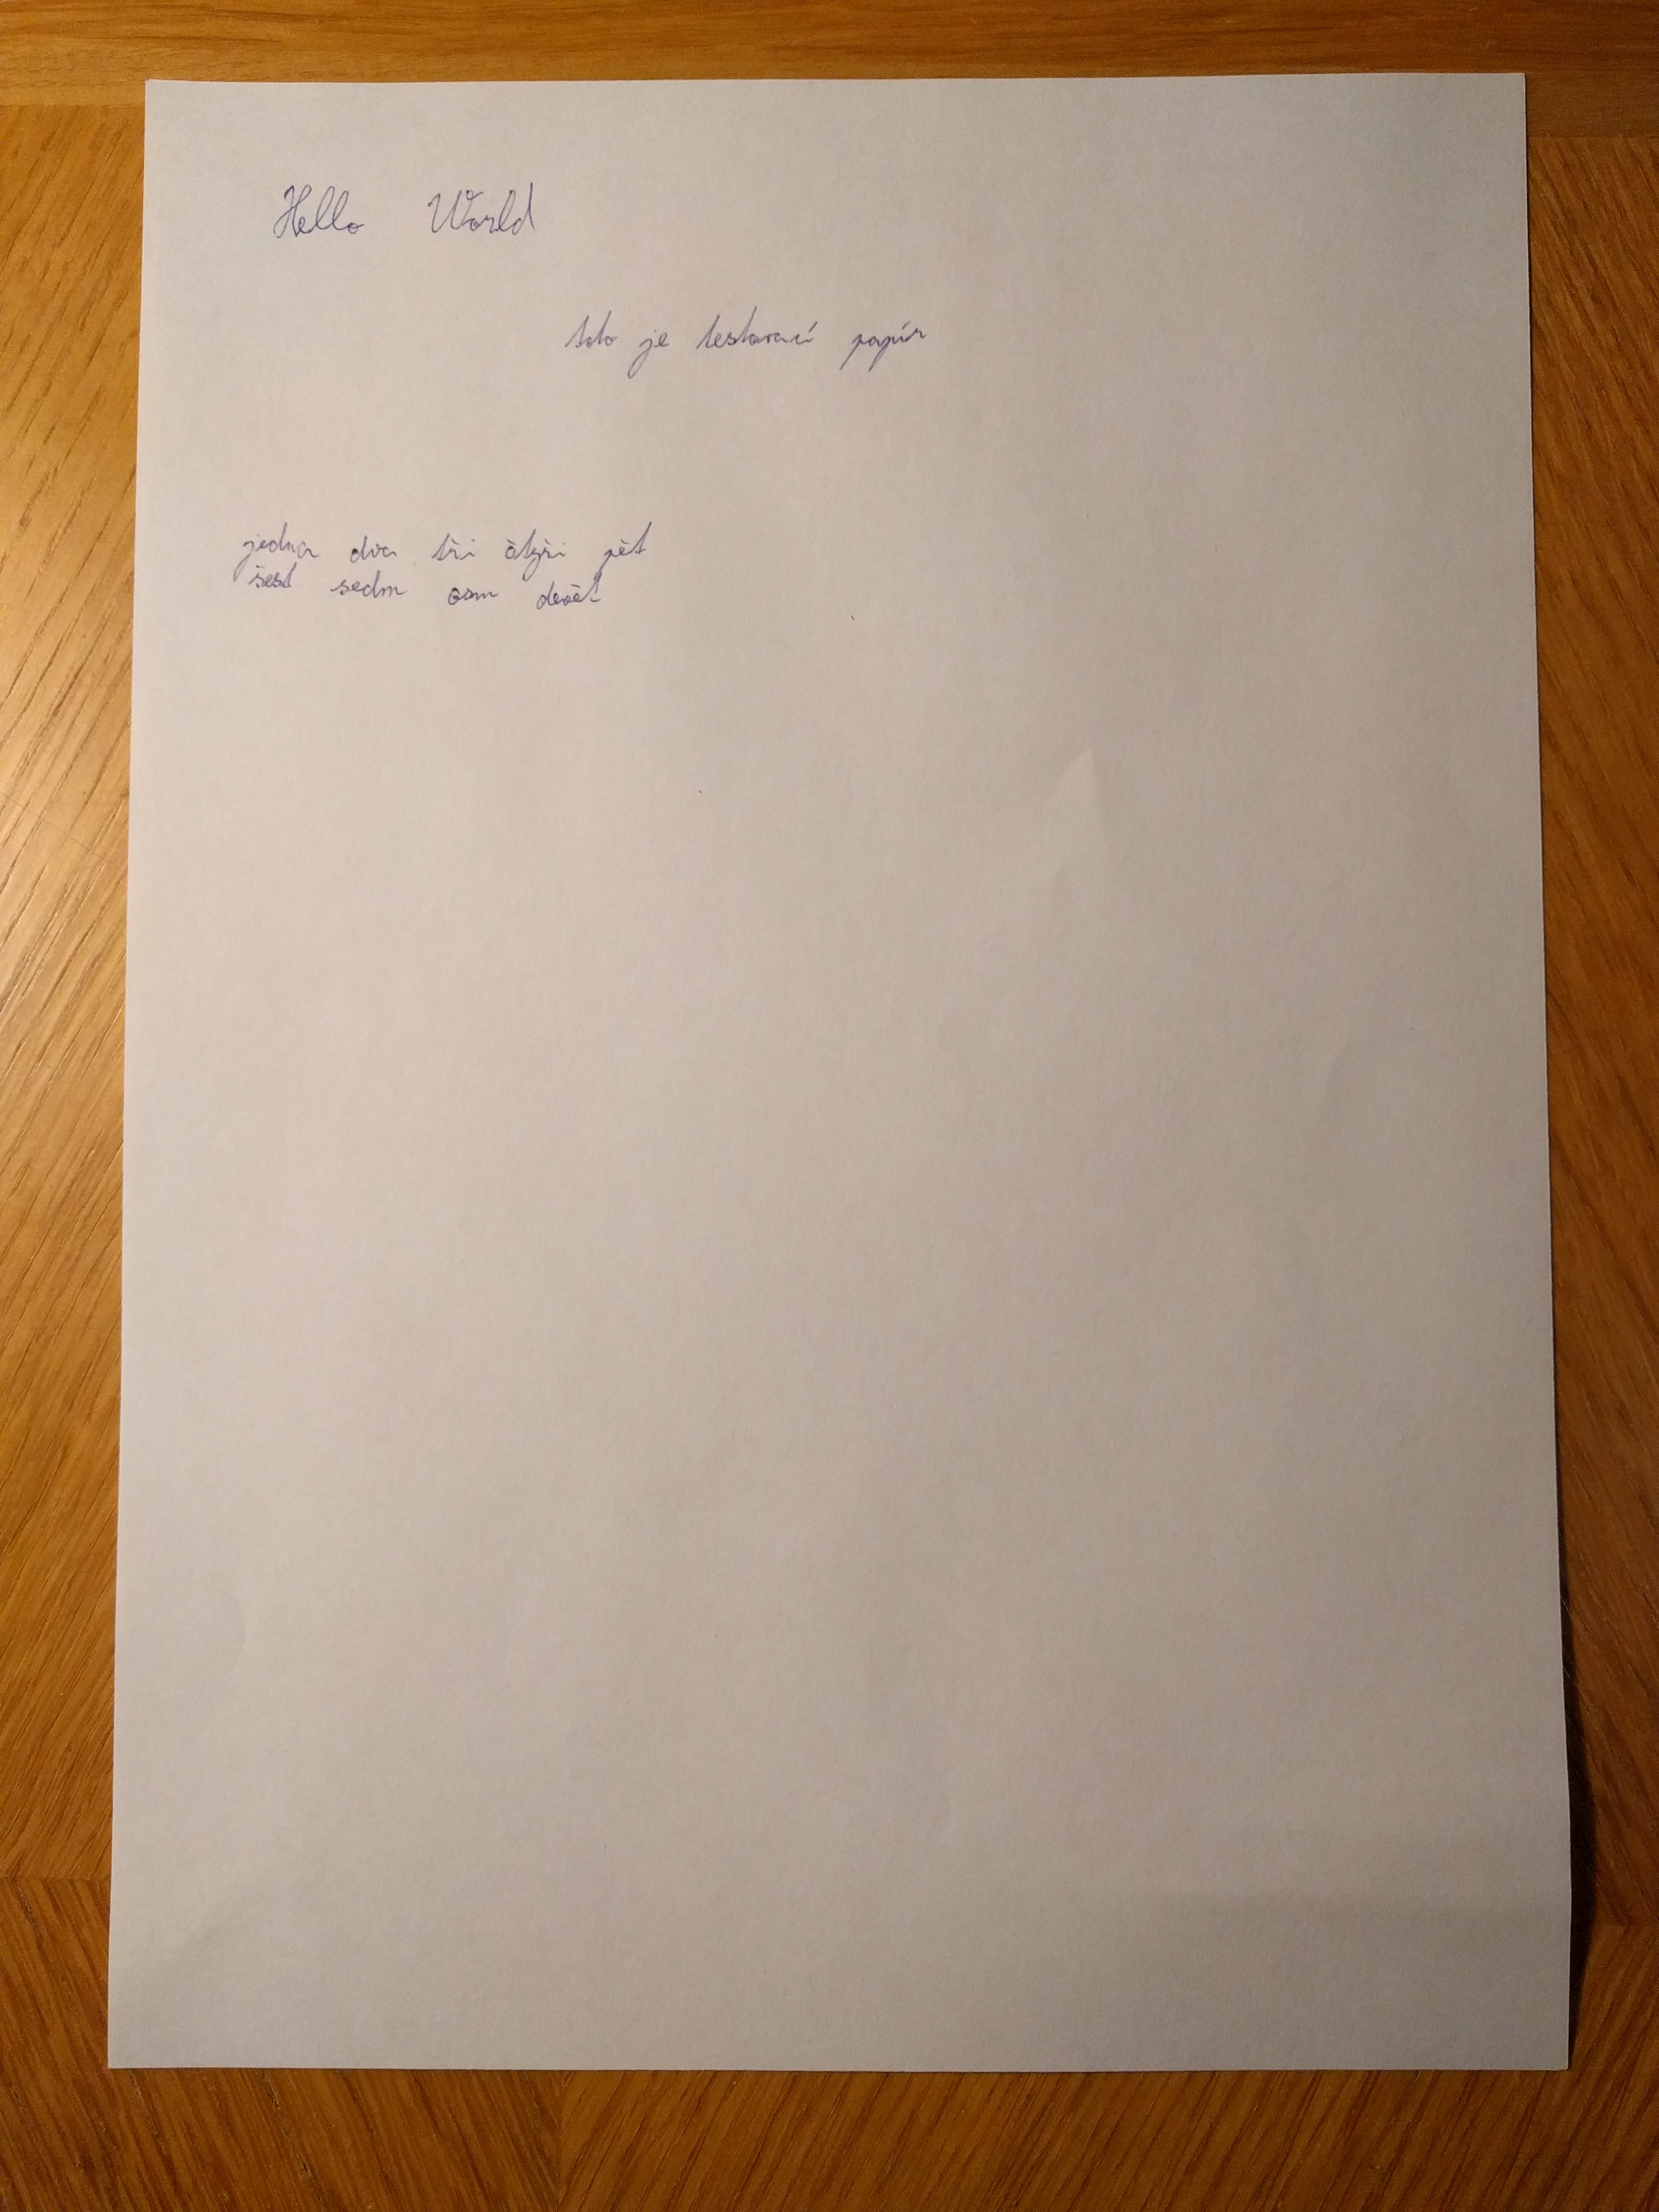 Hello World
toto je testovací papír
jedna dva tři čtyři pět
šest sedm osm devět